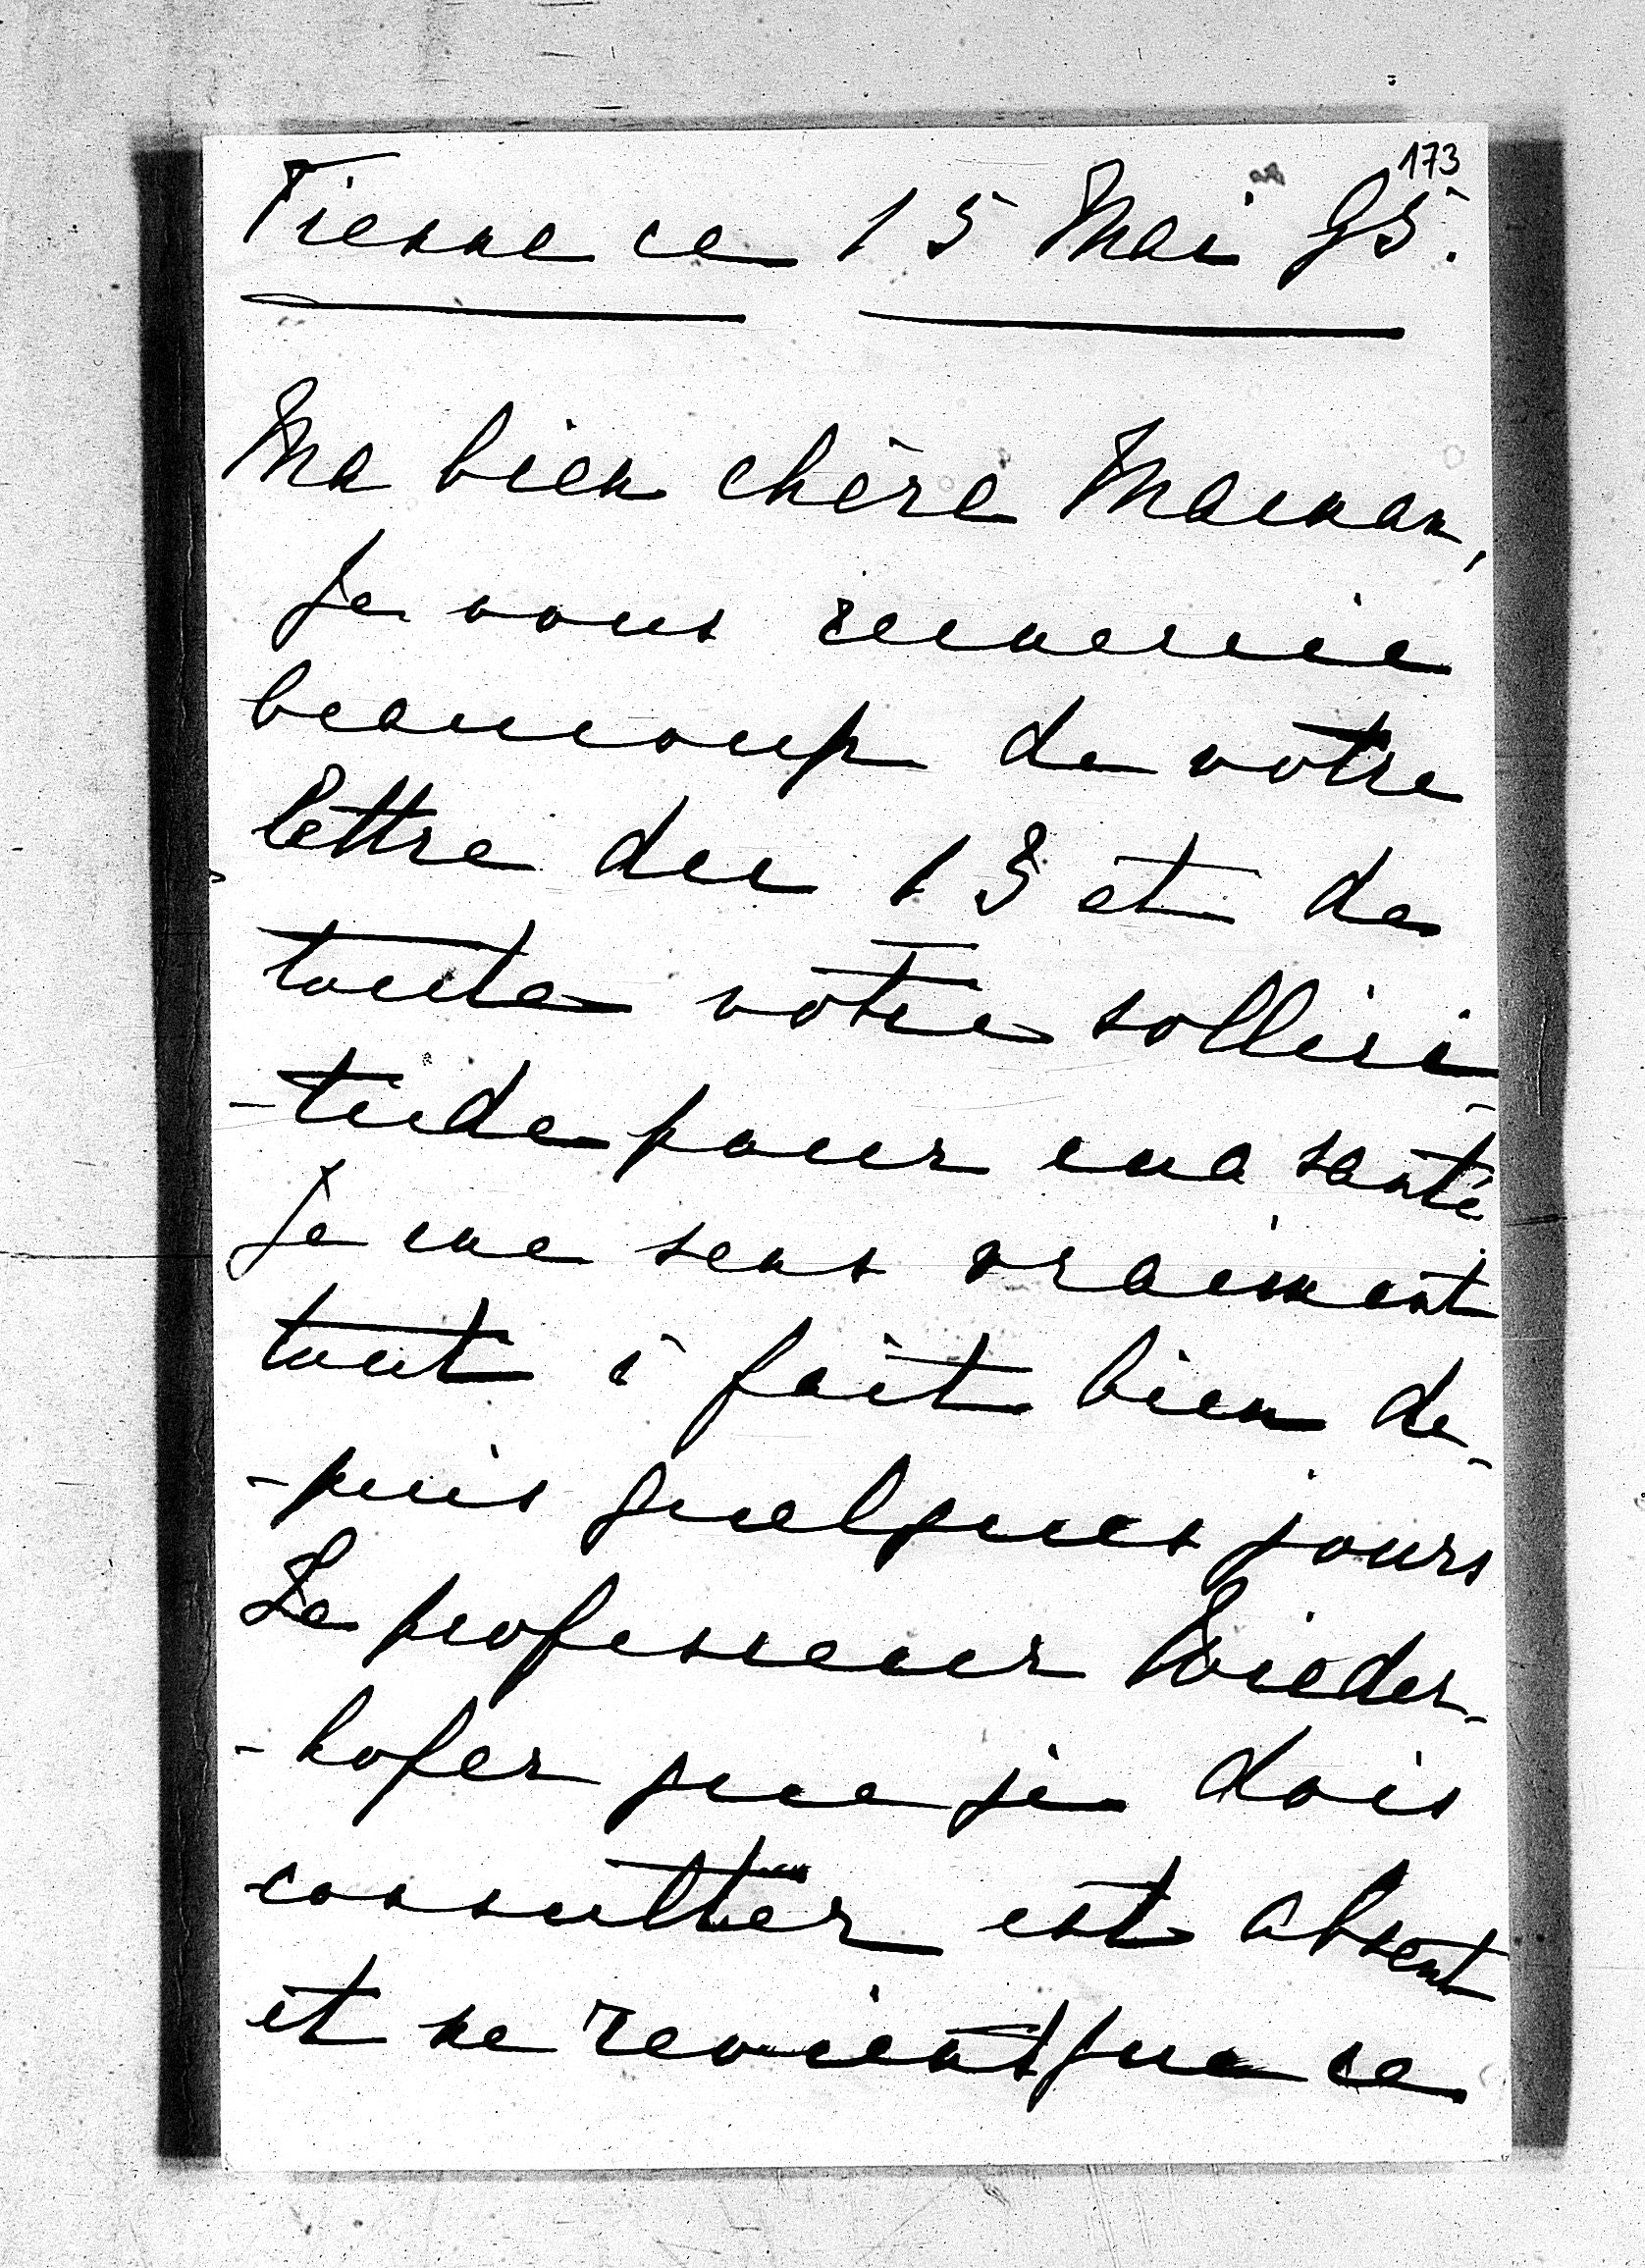 173
Vienne ce 15 Mai 95.
Ma bien chère Maman,
Je vous remercie
beaucoup de votre
lettre du 13 et de
toute votre sollici-
-tude pour ma santé
Je me sens vraiment
tout à fait bien de-
-puis quelques jours
Le professeur Wieder-
-hofer que je dois
consulter est absent
et ne revient que ce